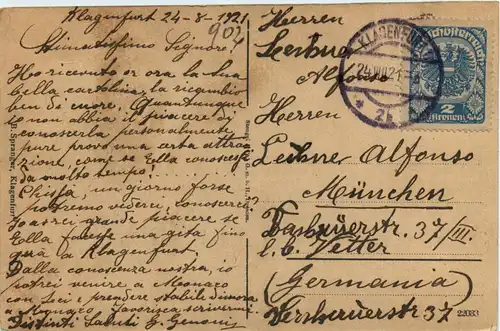 Klagenfurt 24-8-1921
Stimatissimo Signore!
Ho ricevuto or ora la Sua
bella cartolina, la ricambio
ben di cuore. Quantunque
io non abbia il piacere di
conoscerla personalmente
pure provo una certa attra-
zione, come se Ella conoscessi
da molto tempo!
Chissà, un giorno forse
potremo vederci, conoscerci
Io avrei grande piacere se
Ella facesse una gita fino
quà a Klagenfurt.
Dalla conoscenza nostra, io
potrei venire a Monaco
con Lei e prendere stabile dimora
a Monaco. Favorisca scrivermi.
Distinti Saluti G.
902
Herren
Alfonso
Herren
Leitner Alfonso
München
37/III.
b. Vetter
(Germania)
37
KLAGENFURT
24.VIII.21
* 2b
Deutschösterreich
2
Kronen
22033